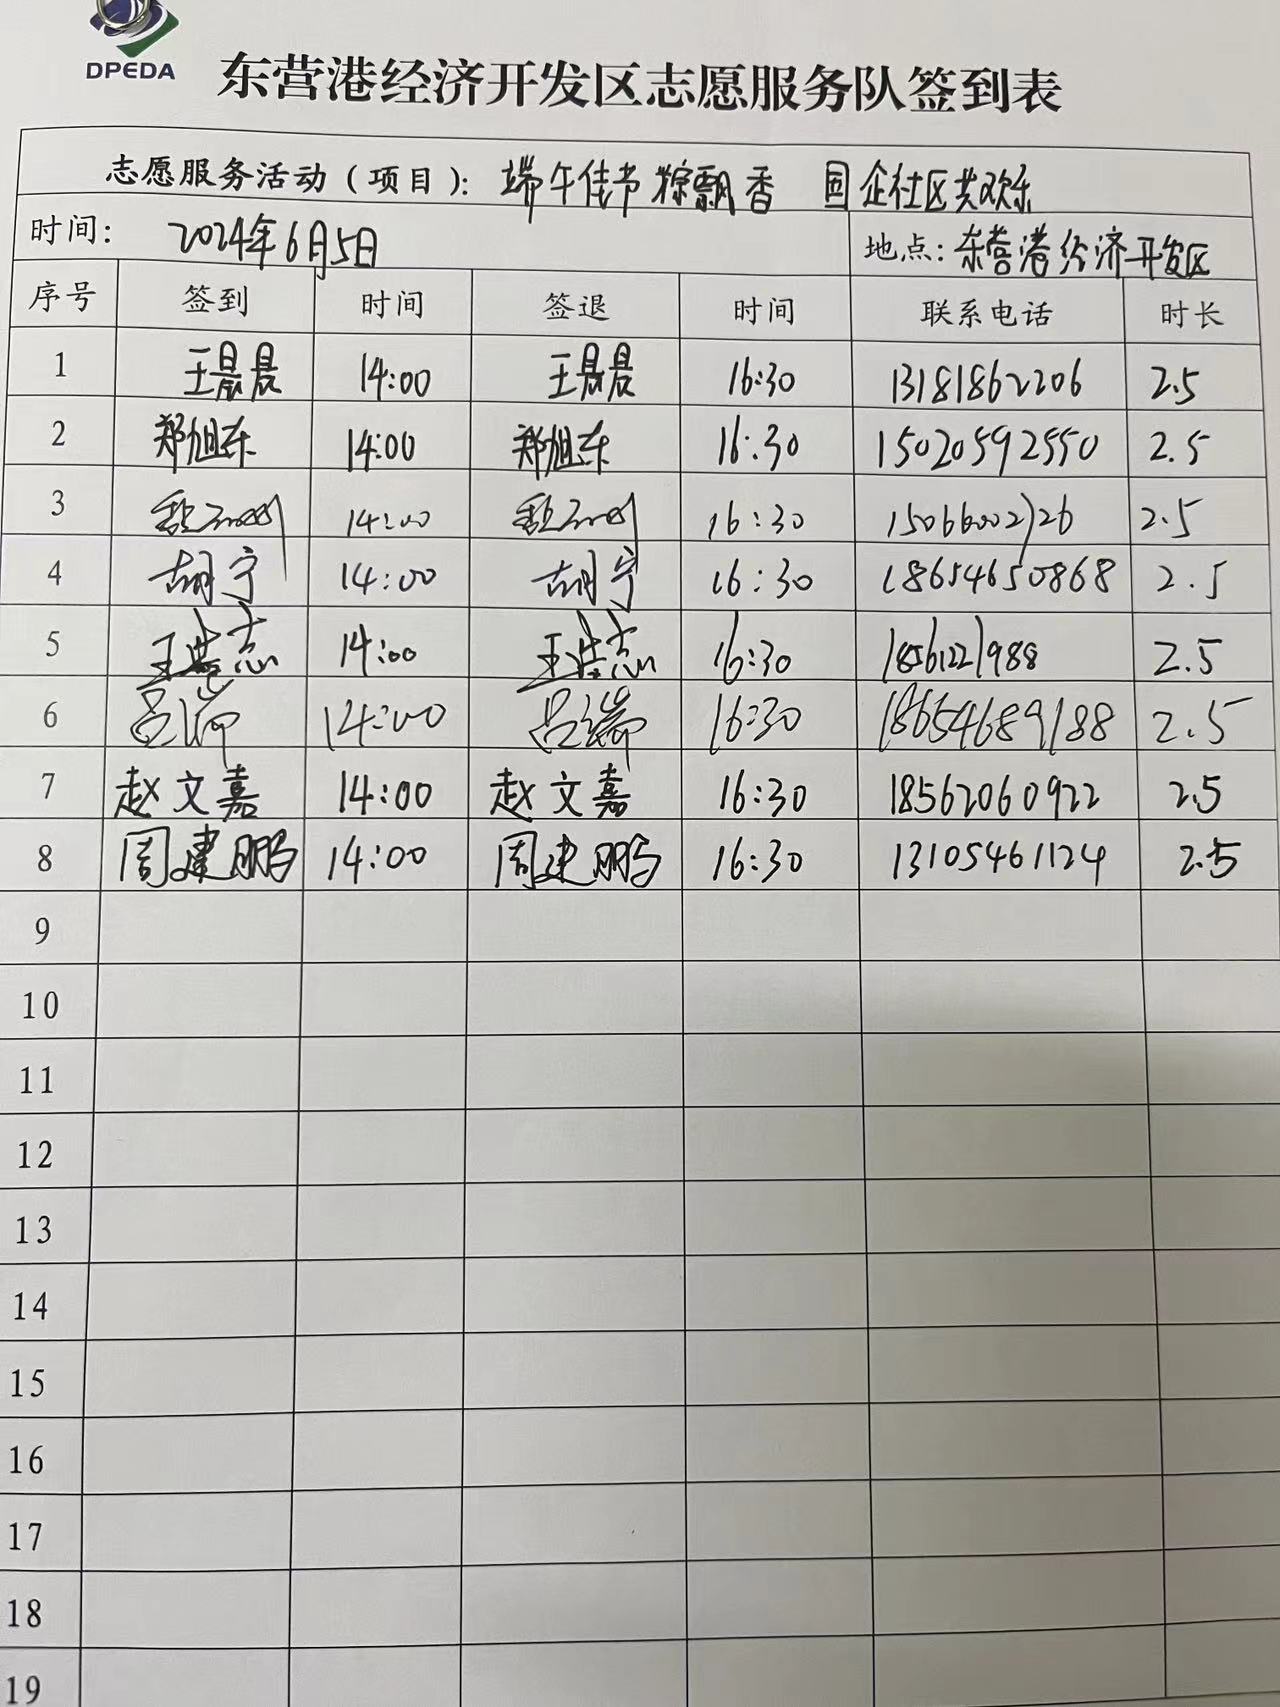 DPEDA
东营港经济开发区志愿服务队签到表
志愿服务活动（项目）：端午佳节粽飘香 国企社区共欢乐
时间： 2024年6月5日 地点：东营港经济开发区
序号 签到 时间 签退 时间 联系电话 时长
1 王晨晨 14:00 王晨晨 16:30 13181862206 2.5
2 郑旭东 14:00 郑旭东 16:30 15020592550 2.5
3 14:00 16:30 15066002726 2.5
4 胡宁 14:00 胡宁 16:30 18654650868 2.5
5 14:00 16:30 18561221988 2.5
6 吕端 14:00 吕端 16:30 18654689188 2.5
7 赵文嘉 14:00 赵文嘉 16:30 18562060922 2.5
8 周建鹏 14:00 周建鹏 16:30 13105461124 2.5
9
10
11
12
13
14
15
16
17
18
19